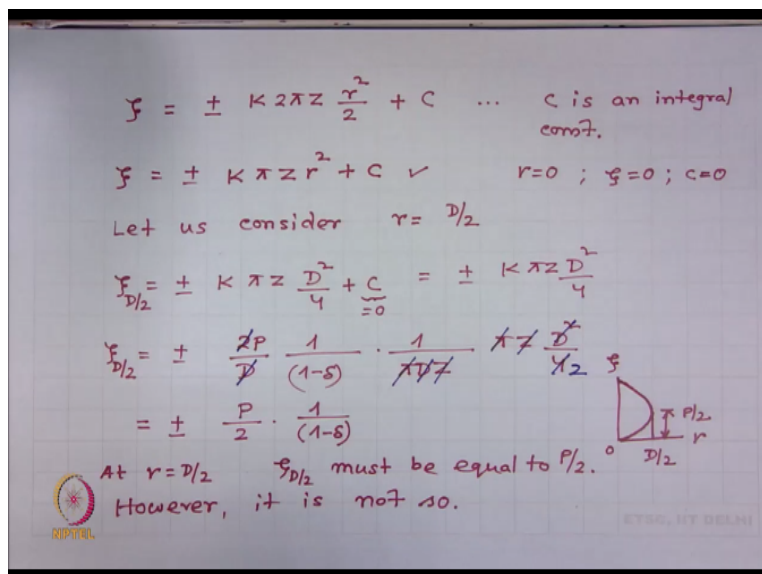 ξ = ± K 2πZ r²/2 + C ... C is an integral const.
ξ = ± K π Z r² + C ✓ r=0 ; ξ=0 ; C=0
Let us consider r = D/2
ξ_D/2 = ± K π Z D²/4 + C (=0) = ± K π Z D²/4
ξ_D/2 = ± 2P/D 1/(1-δ) · 1/(πDZ) πZ D²/4 2
= ± P/2 · 1/(1-δ)
ξ
P/2
0 D/2 r
At r = D/2 ξ_D/2 must be equal to P/2.
However, it is not so.
NPTEL
ETSC, IIT DELHI